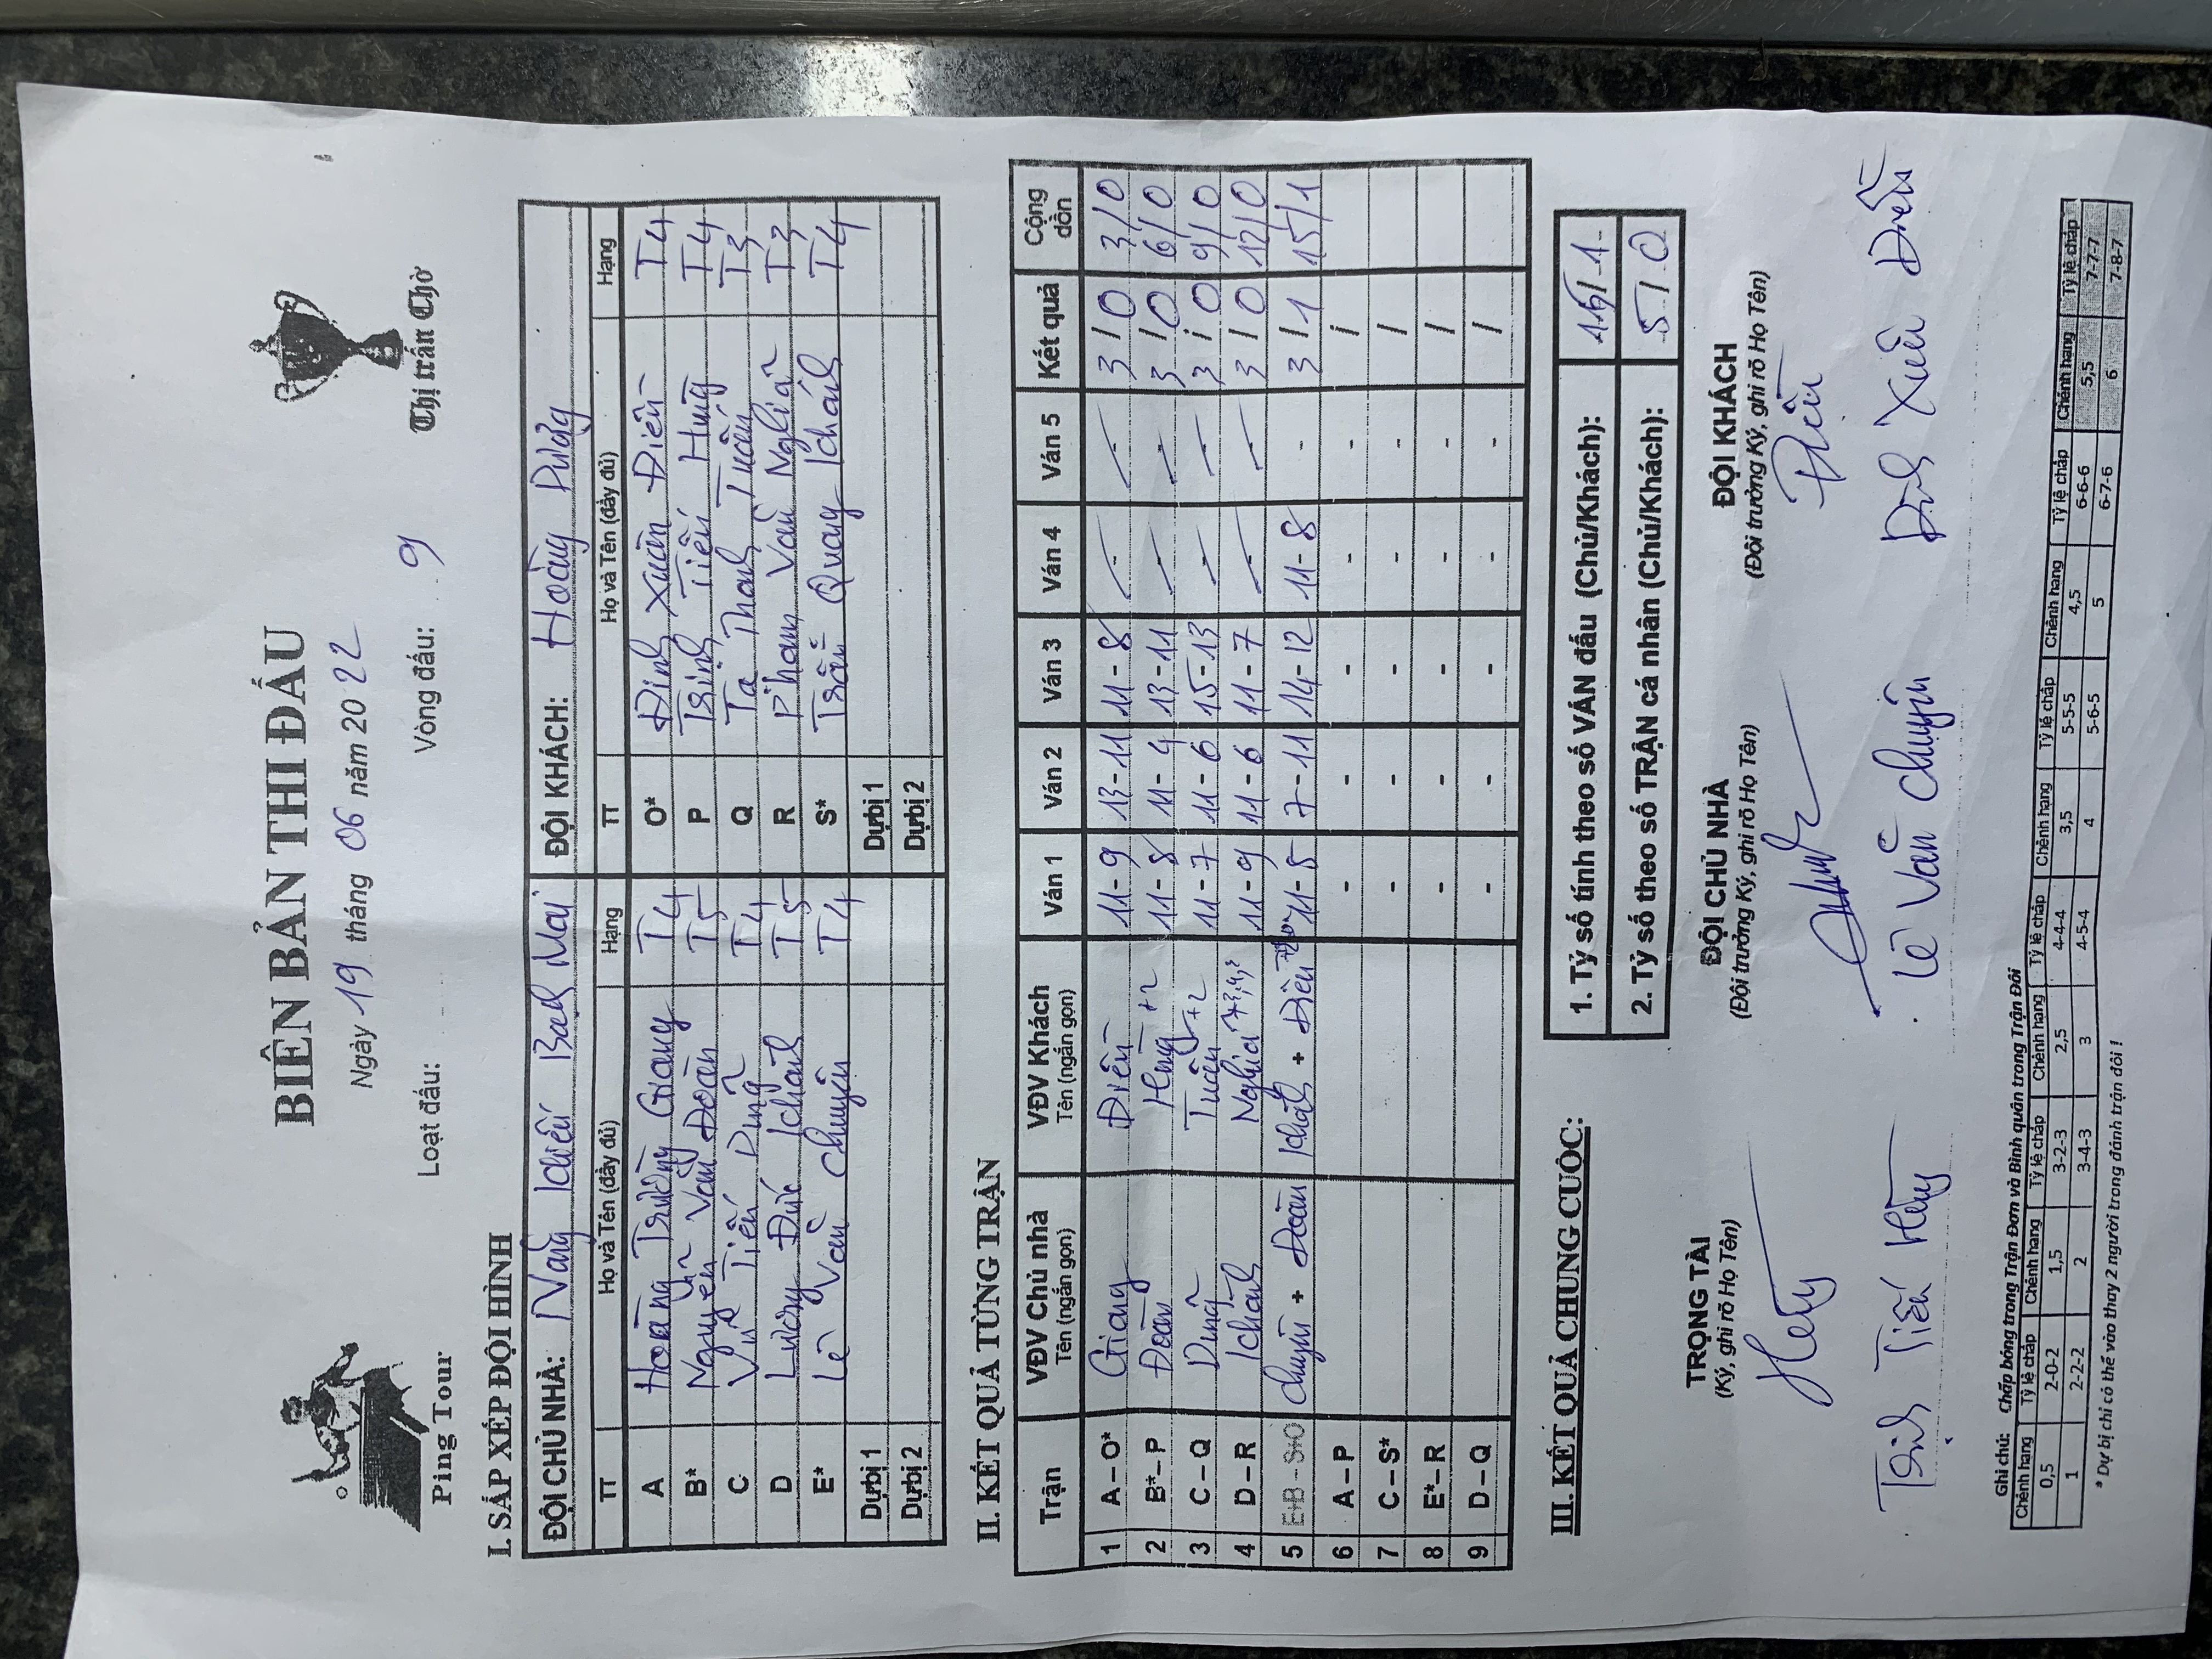 BIÊN BẢN THI ĐẤU
Ngày 19 tháng 06 năm 2022
Ping Tour
Loạt đấu: Vòng đấu: 9
Thị trấn Chờ
I. SẮP XẾP ĐỘI HÌNH
ĐỘI CHỦ NHÀ: Năng khiếu Bạch Mai ĐỘI KHÁCH: Hoàng Dương
TT Họ và Tên (đầy đủ) Hạng TT Họ và Tên (đầy đủ) Hạng
A Hoàng Trường Giang T4 O* Đinh Xuân Điền T4
B* Nguyễn Văn Đoàn T5 P Trịnh Tiến Hùng T4
C Vũ Tiến Dũng T4 Q Tạ Thanh Tuấn T3
D Lương Đức Khánh T5 R Phạm Văn Nghĩa T3
E* Lê Văn Chuyên T4 S* Trần Quang Khánh T4
Dự bị 1 Dự bị 1
Dự bị 2 Dự bị 2
II. KẾT QUẢ TỪNG TRẬN
Trận VĐV Chủ nhà VĐV Khách Ván 1 Ván 2 Ván 3 Ván 4 Ván 5 Kết quả Cộng dồn
Tên (ngắn gọn) Tên (ngắn gọn)
1 A – O* Giang Điền 11 - 9 13 - 11 11 - 8 - - 3 / 0 3/0
2 B* – P Đoàn Hùng +2 11 - 8 11 - 4 13 - 11 - - 3 / 0 6/0
3 C – Q Dũng Tuấn +2 11 - 7 11 - 6 15 - 13 - - 3 / 0 9/0
4 D – R Khánh Nghĩa 11 - 9 11 - 6 11 - 7 - - 3 / 0 12/0
5 E+B – S+O Chuyên + Đoàn Khánh + Điền 11 - 8 7 - 11 14 - 12 11 - 8 - 3 / 1 15/1
6 A – P - - - - - /
7 C – S* - - - - - /
8 E* – R - - - - - /
9 D – Q - - - - - /
III. KẾT QUẢ CHUNG CUỘC:
1. Tỷ số tính theo số VÁN đấu (Chủ/Khách): 15/1
2. Tỷ số theo số TRẬN cá nhân (Chủ/Khách): 5/0
TRỌNG TÀI ĐỘI CHỦ NHÀ ĐỘI KHÁCH
(Ký, ghi rõ Họ Tên) (Đội trưởng Ký, ghi rõ Họ Tên) (Đội trưởng Ký, ghi rõ Họ Tên)
Điền
Trịnh Tiến Hùng Lê Văn Chuyên Đinh Xuân Điền
Ghi chú: Chấp bóng trong Trận Đơn và Bình quân trong Trận Đôi
Chênh hạng Tỷ lệ chấp Chênh hạng Tỷ lệ chấp Chênh hạng Tỷ lệ chấp Chênh hạng Tỷ lệ chấp Chênh hạng Tỷ lệ chấp Chênh hạng Tỷ lệ chấp
0,5 2-0-2 1,5 3-2-3 2,5 4-4-4 3,5 5-5-5 4,5 6-6-6 5,5 7-7-7
1 2-2-2 2 3-4-3 3 4-5-4 4 5-6-5 5 6-7-6 6 7-8-7
* Dự bị chỉ có thể vào thay 2 người trong đánh trận đôi !